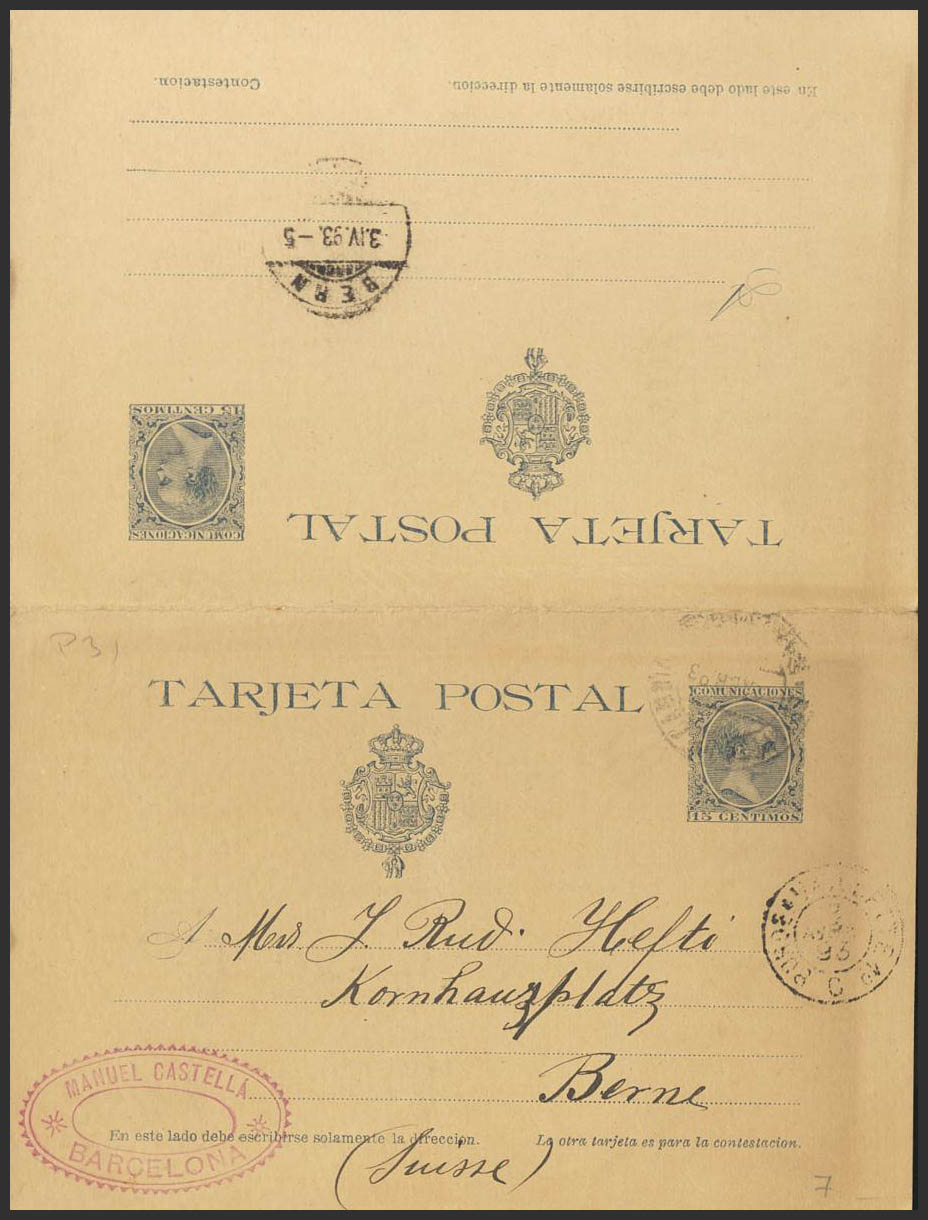 En este lado debe escribirse solamente la direccion. Contestacion.
BERN
3.IV.93.-5
COMUNICACIONES
15 CENTIMOS
TARJETA POSTAL
P31
TARJETA POSTAL
COMUNICACIONES
15 CENTIMOS
A Mrs J. Rud. Hefti
Kornhausplatz
93
C
Berne
MANUEL CASTELLÁ
BARCELONA
En este lado debe escribirse solamente la dirección. La otra tarjeta es para la contestacion.
(Suisse)
7